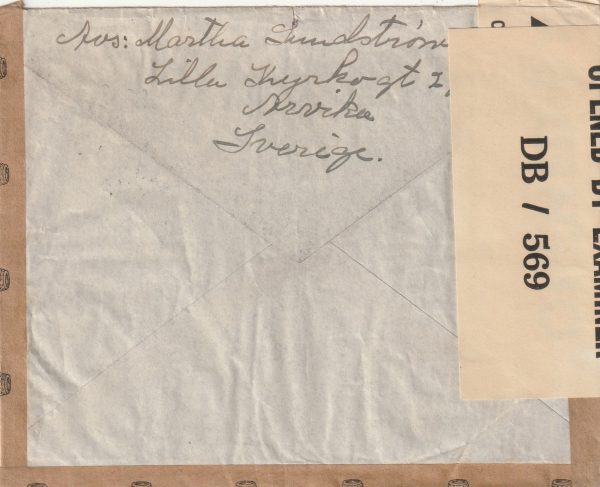 Avs: Martha Lundström
Lilla Kyrkogt 2,
Arvika
Sverige.
OPENED BY EXAMINER
DB / 569